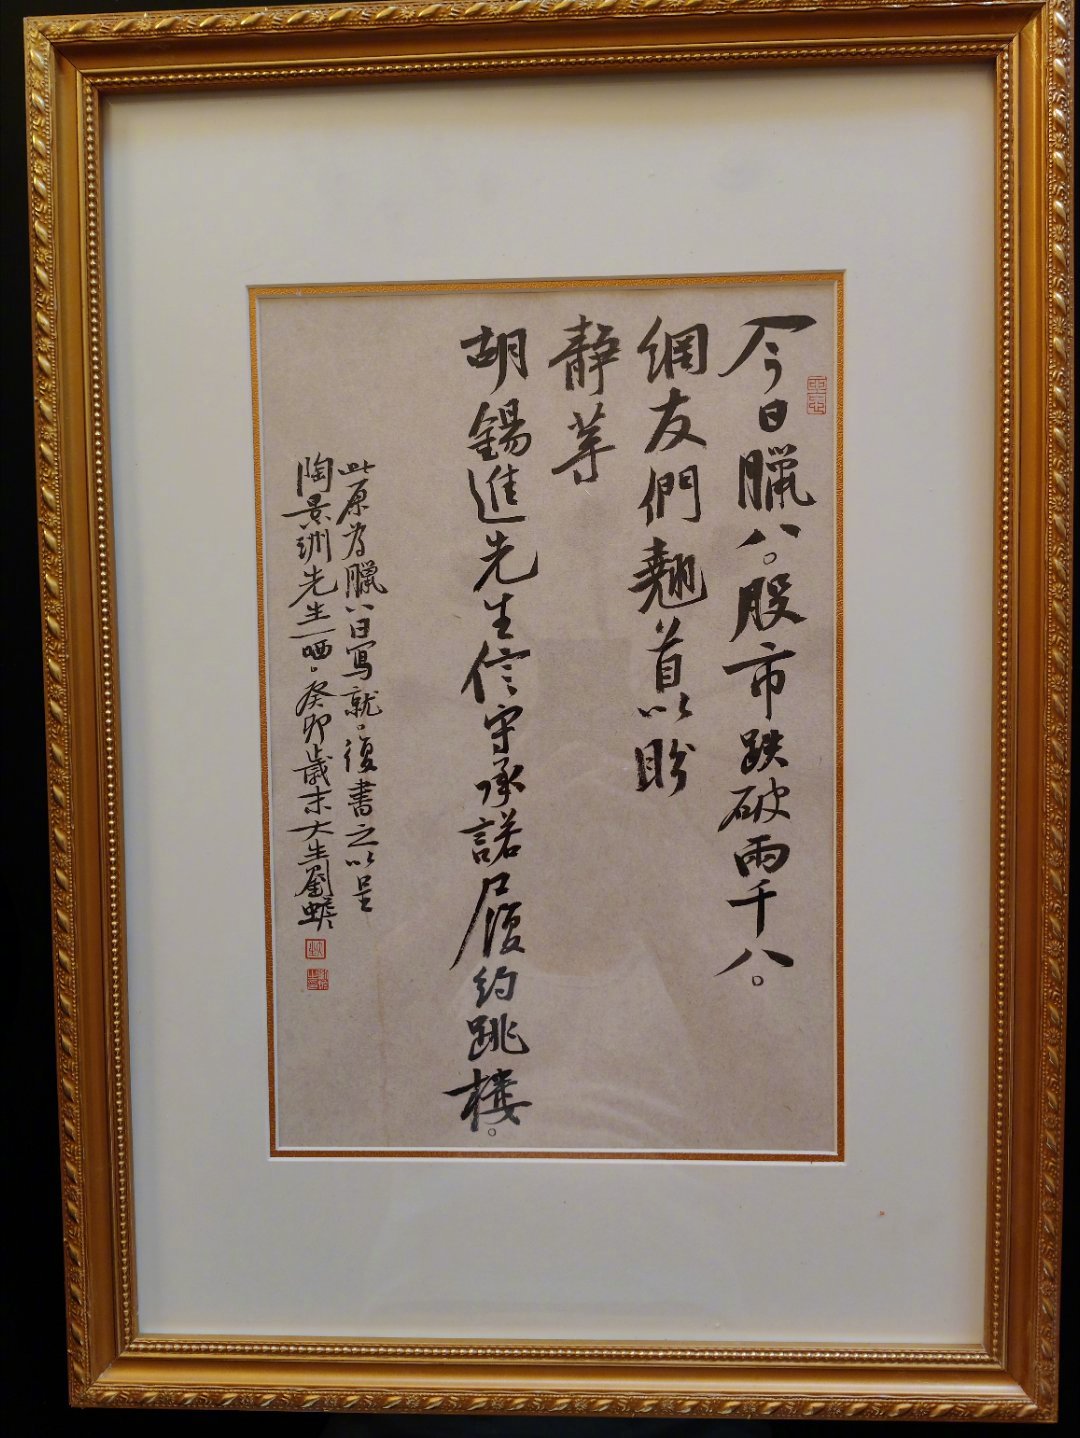 今日臘八。股市跌破兩千八。
網友們翹首以盼
靜等
胡錫進先生信守承諾履約跳樓。
此原為臘八日寫就。復書之以呈
陶景洲先生一哂。癸卯歲末大生劉蟾